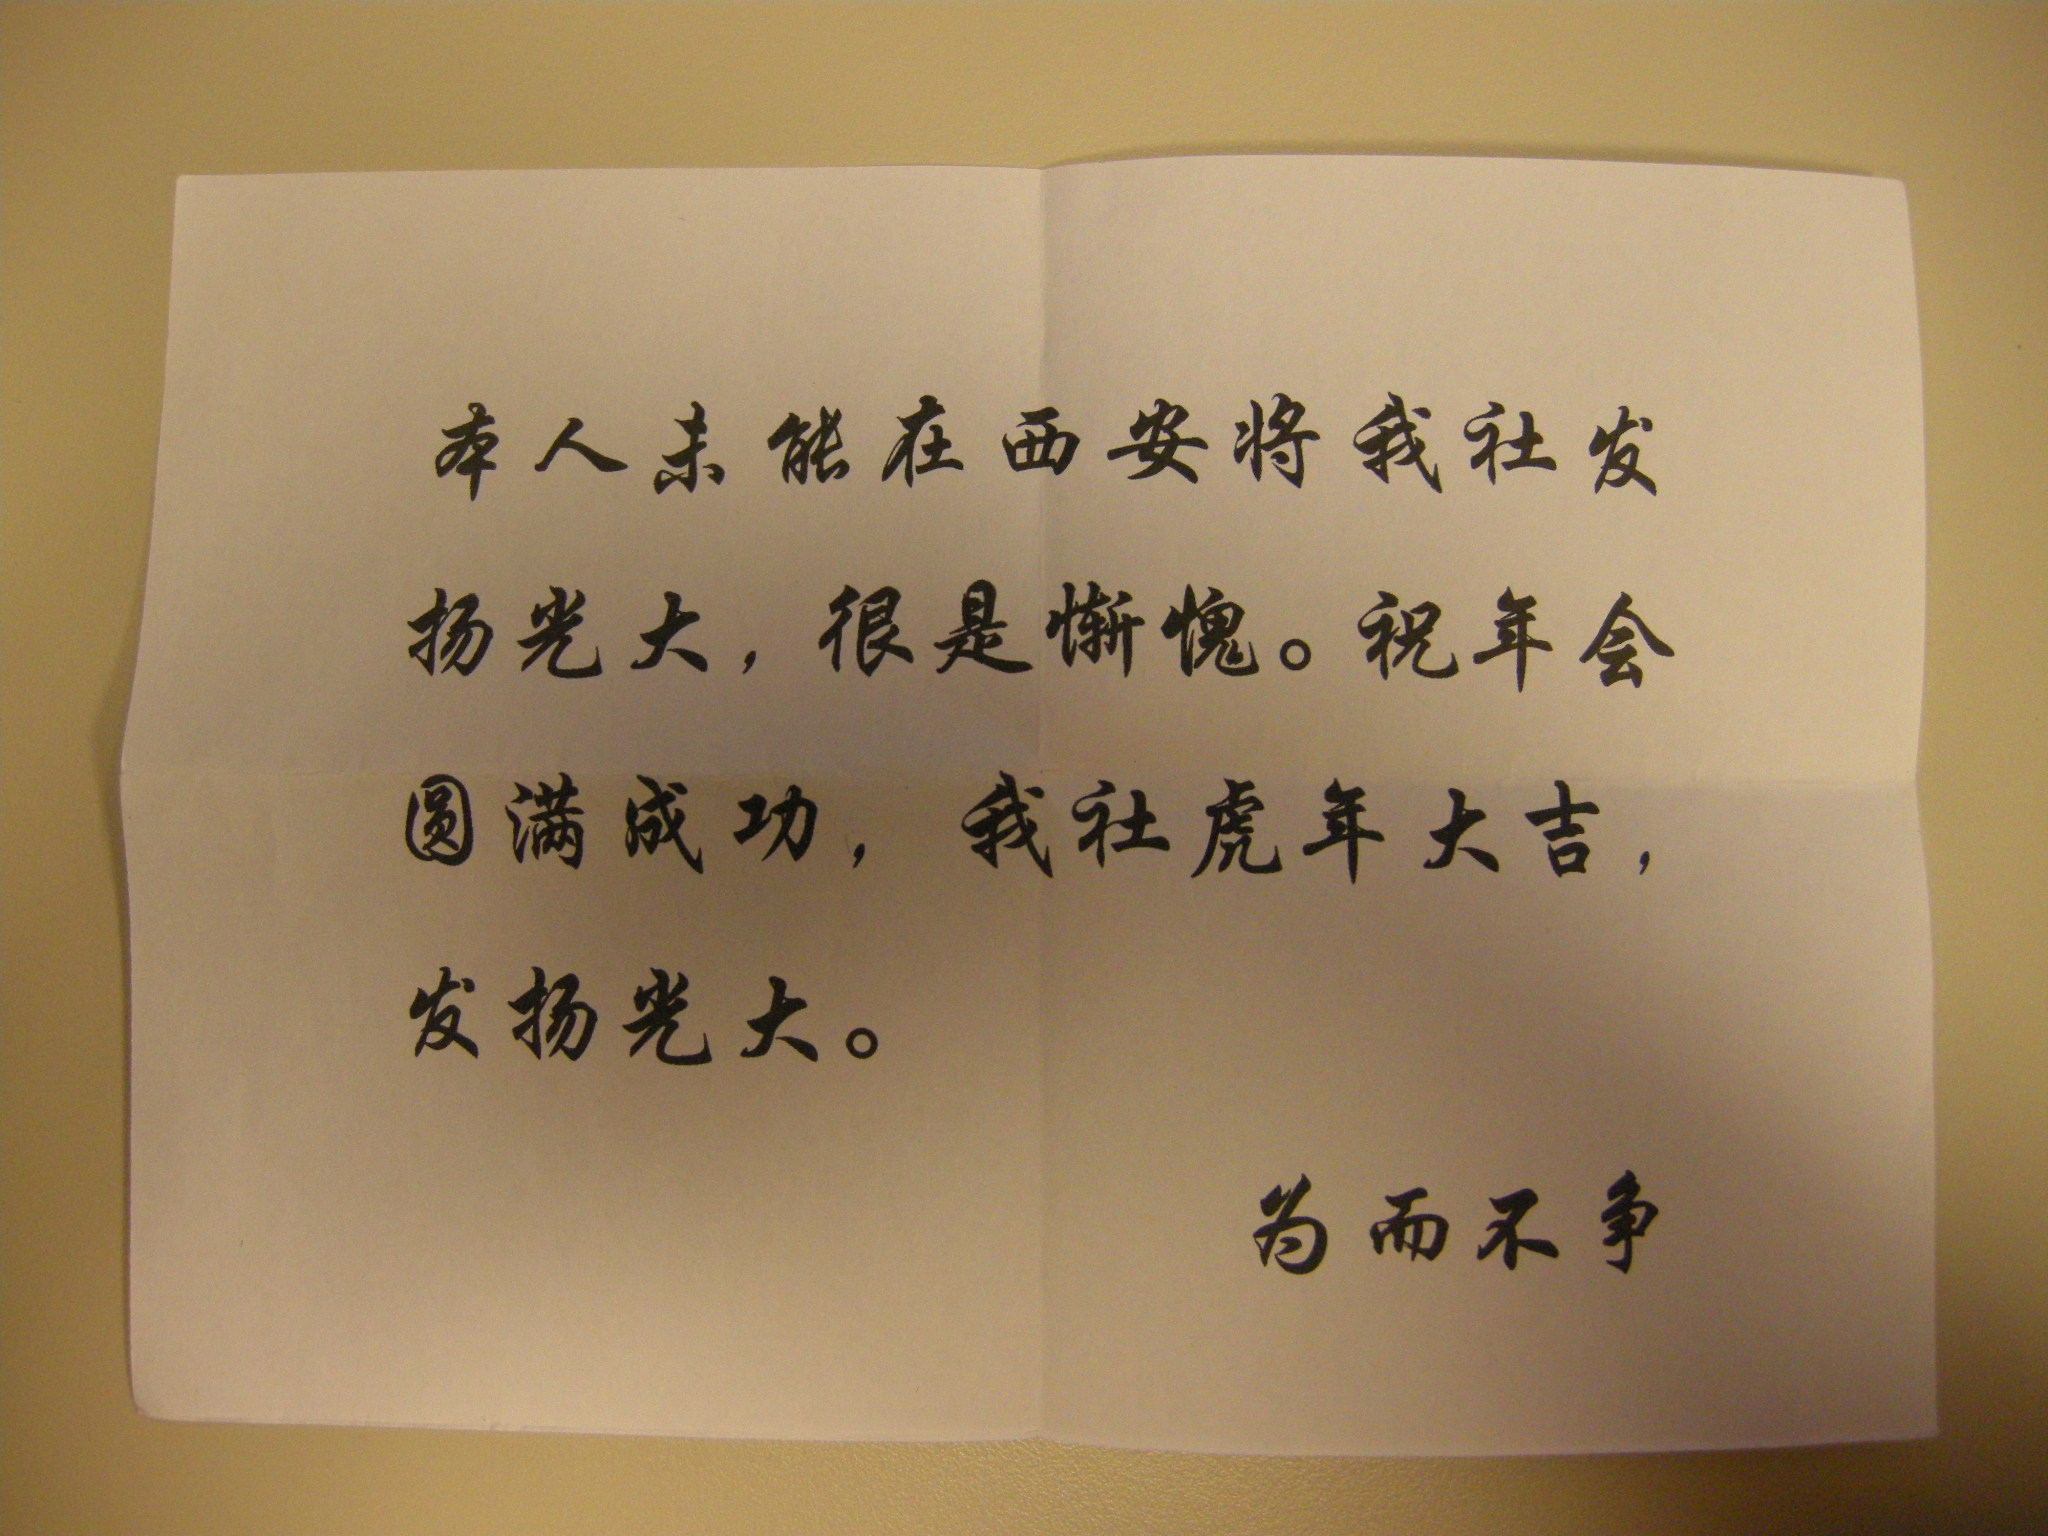 本人未能在西安将我社发
扬光大，很是惭愧。祝年会
圆满成功，我社虎年大吉，
发扬光大。
为而不争